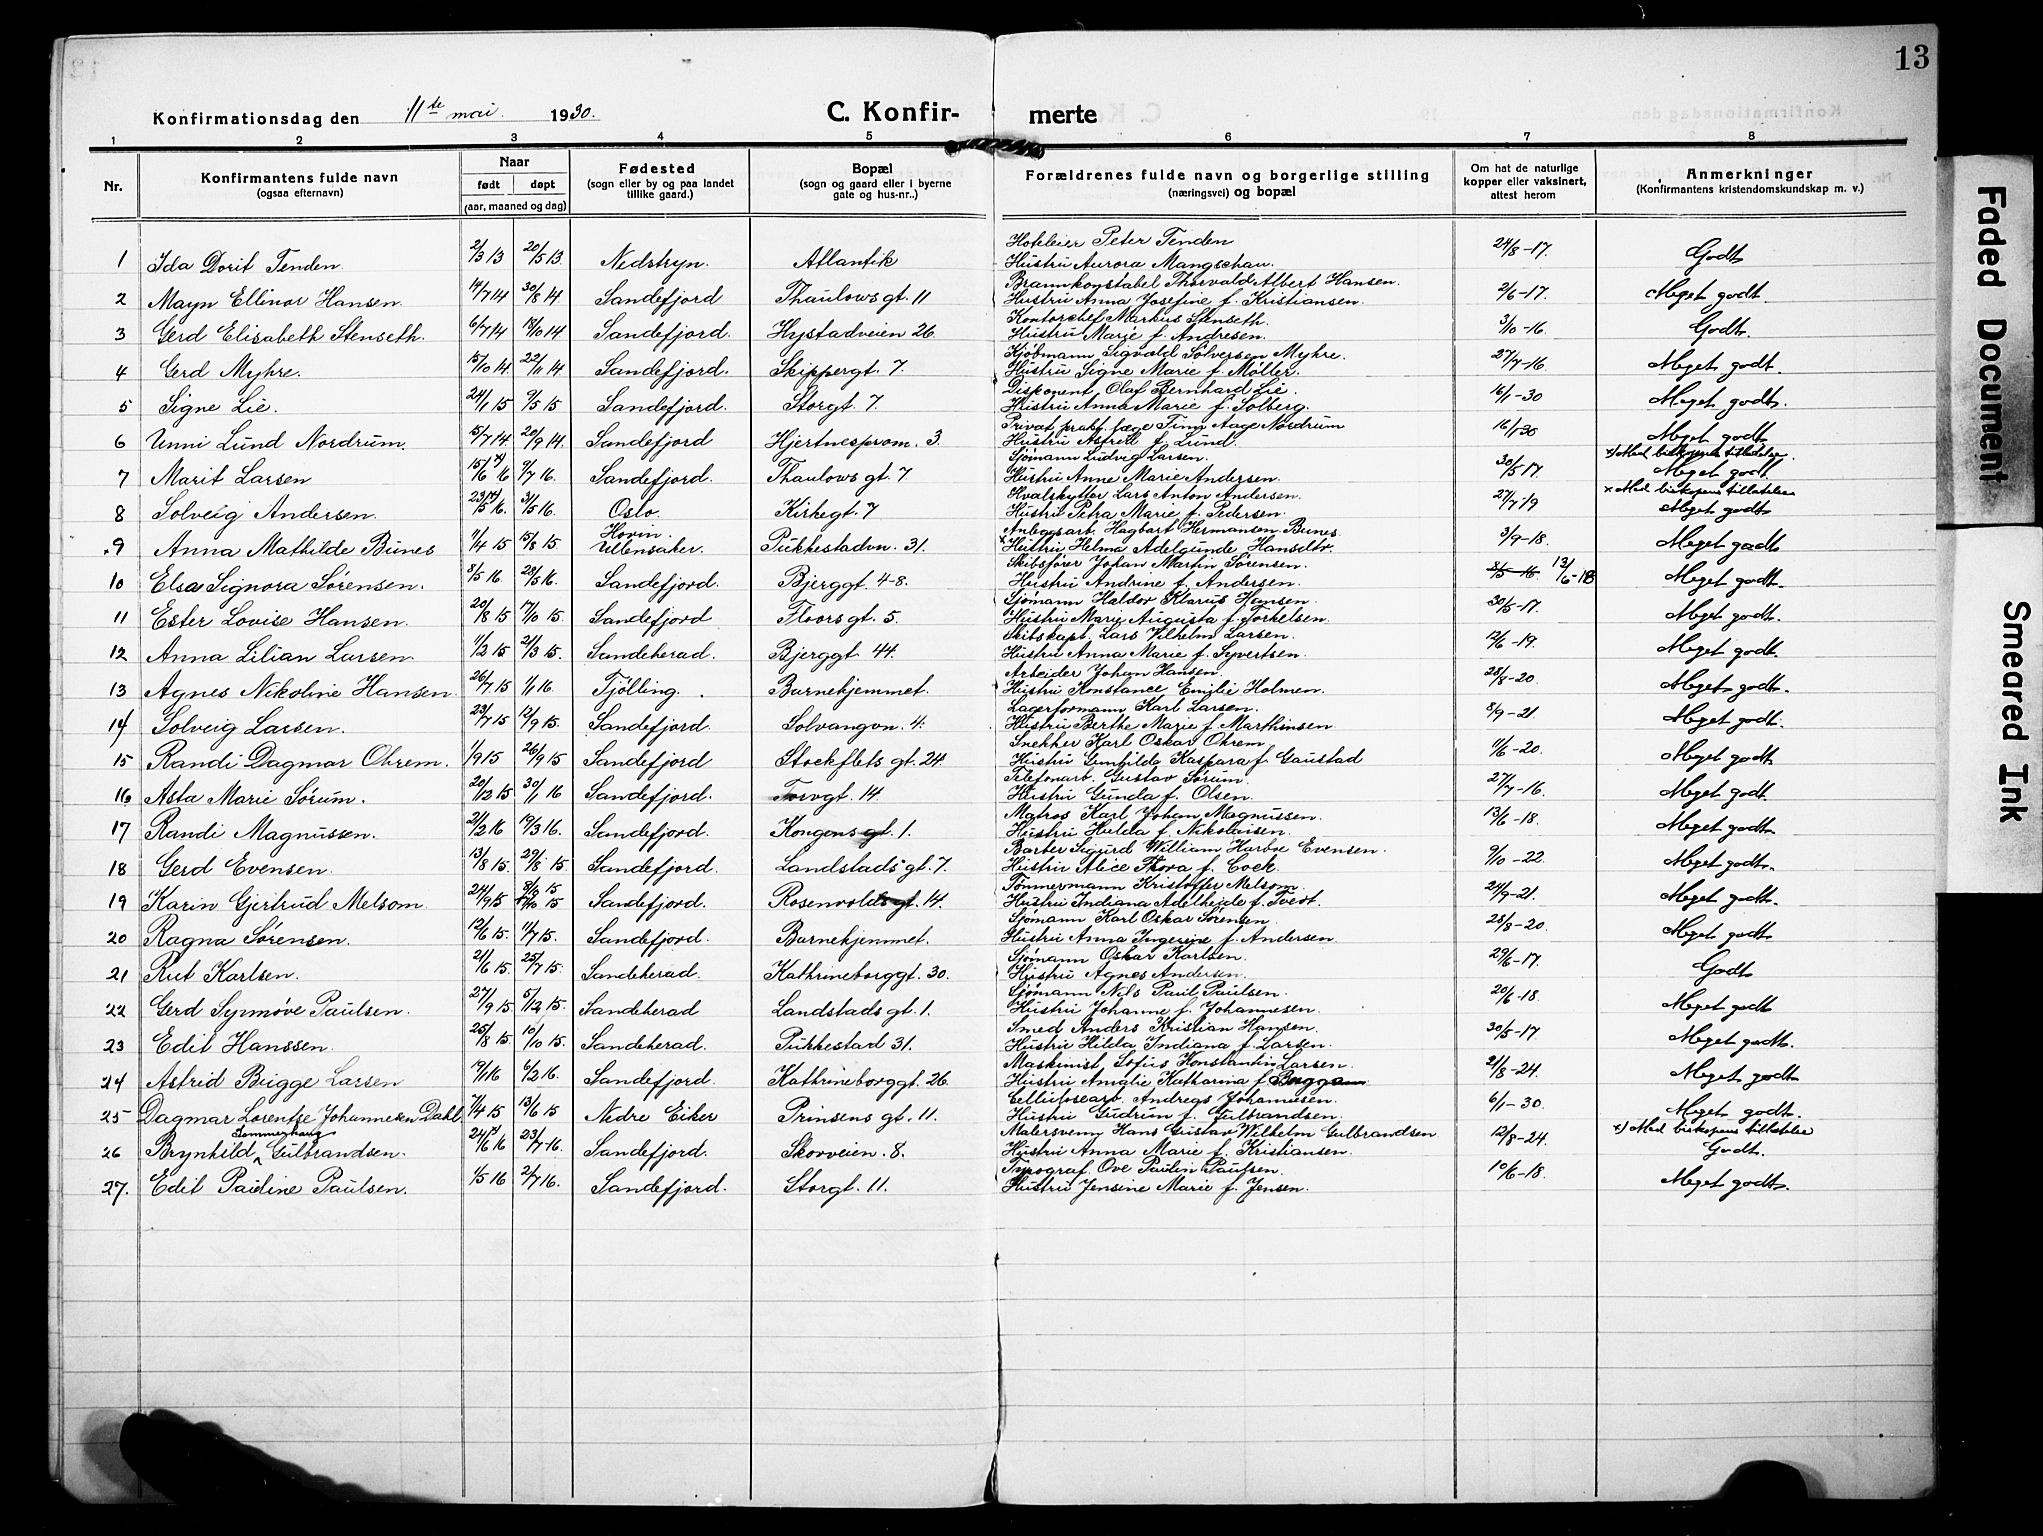 13
Konfirmationsdag den 11te mai 1930.
C. Konfir- merte
1 2 3 4 5 6 7 8
Nr.
Konfirmantens fulde navn (ogsaa efternavn)
Naar født døpt (aar, maaned og dag)
Fødested (sogn eller by og paa landet tillike gaard.)
Bopæl (sogn og gaard eller i byerne gate og hus-nr..)
Forældrenes fulde navn og borgerlige stilling (næringsvei) og bopæl
Om hat de naturlige kopper eller vaksinert, attest herom
Anmerkninger (Konfirmantens kristendomskundskap m. v.)
Hoteleier Peter Tenden
1 Ida Dorit Tenden. 2/3 13 20/5 13 Nedstryn. Atlantik Hustru Aurora Mangschau. 24/8-17. Godt
Brannkonstabel Thorvald Albert Hansen.
2 Mayn Ellinor Hansen. 14/7 14 30/8 14 Sandefjord Thaulowsgt. 11 Hustru Anna Josefine f. Kristiansen. 2/6-17. Meget godt.
Kontorchef Markus Stenseth.
3 Gerd Elisabeth Stenseth. 6/7 14 18/10 14 Sandefjord. Hystadveien 26 Hustru Marie f. Andresen. 3/10-16. Godt.
Kjøbmann Sigvald Sølversen Myhre.
4 Gerd Myhre. 15/10 14 22/11 14 Sandefjord. Skippergt. 7. Hustru Signe Marie f. Møller. 27/7-16. Meget godt.
Disponent Olaf Bernhard Lie.
5 Signe Lie. 24/1 15 9/5 15 Sandefjord. Storgt. 7. Hustru Anna Marie f. Solberg. 16/1-30 Meget godt.
Privat prakt. læge Finn Aage Nordrum
6 Unni Lund Nordrum. 15/7 14. 20/9 14. Sandefjord Hjertnesprom. 3. Hustru Astrid f. Lund. 16/1 30 Meget godt
Sjømann Ludvig Larsen. x) Med biskopens tillatelse.
7 Marit Larsen 15/6 x) 16 9/7 16. Sandefjord. Thaulowsgt. 7 Hustru Anne Marie Andersen. 30/5 17. Meget godt.
Hvalskytter Lars Anton Andersen. x Med biskopens tillatelse
8 Solveig Andersen. 23/5 x) 16. 31/5 16. Oslo. Kirkegt. 7 Hustru Petra Marie f. Pedersen. 27/7-19 Meget godt
Anleggsarb. Hagbart Hermansen Bunes.
9 Anna Mathilde Bunes 11/4 15 15/8 15. Hovin. Ullensaker. Pukkestadvn. 31. Hustru Helma Adelgunde Hansdtr. 3/9-18. Meget godt
Skibsfører Johan Martin Sørensen.
10 Elsa Signora Sørensen. 8/5 16. 28/5 16. Sandefjord. Bjerggt. 4-8. Hustru Andrine f. Andersen. 8/5-16. 13/6-18 Meget godt.
Sjømann Haldor Klarus Hansen.
11 Ester Lovise Hansen. 20/8 15 17/10 15. Sandefjord Floorsgt. 5. Hustru Marie Augusta f. Torkelsen. 30/5-17. Meget godt.
Skibskapt. Lars Vilhelm Larsen.
12 Anna Lilian Larsen. 1/2 15 21/3 15. Sandeherad. Bjerggt. 44. Hustru Anna Marie f. Syvertsen. 12/6-19. Meget godt.
Arbeider Johan Hansen.
13 Agnes Nikoline Hansen. 26/7 15 1/1 16. Tjølling. Barnehjemmet. Hustru Konstance Emilie Holmen. 28/8-20. Meget godt.
Lagerformann Karl Larsen.
14 Solveig Larsen. 23/7 15 12/9 15. Sandefjord. Solvangvn. 4. Hustru Berthe Marie f. Marthinsen 8/9-21. Meget godt.
Snekker Karl Oskar Ohrem.
15 Randi Dagmar Ohrem. 1/9 15 26/9 15 Sandefjord Stockflets gt. 24. Hustru Gunhilda Kaspara f. Gaustad 11/6-20. Meget godt
Telefonarb. Gustav Sørum.
16 Asta Marie Sørum. 20/12 15. 30/1 16 Sandefjord. Torvgt. 14. Hustru Gunda f. Olsen. 27/7-16. Meget godt.
Matros Karl Johan Magnussen.
17 Randi Magnussen. 21/2 16 19/3 16. Sandefjord. Kongensgt. 1. Hustru Hulda f. Nikolaisen. 13/6-18. Meget godt.
Barber Sigurd William Harboe Evensen.
18 Gerd Evensen. 13/8 15. 29/8 15. Sandefjord. Landstads gt. 7. Hustru Alice Thora f. Cock. 9/10-22. Meget godt.
Tømmermann Kristoffer Melsom.
19 Karin Gjertrud Melsom. 24/9 15 15 Sandefjord. Rosenvolds gt. 14. Hustru Indiana Adelheide f. Tvedt. 24/9-21. Meget godt.
Sjømann Karl Oskar Sørensen.
20 Ragna Sørensen. 12/6 15. 11/7 15. Sandefjord. Barnehjemmet. Hustru Anna Ingerine f. Andersen 28/8-20. Meget godt
Sjømann Oskar Karlsen.
21 Rut Karlsen. 21/6 15. 25/7 15. Sandeherad. Kathrineborggt. 30. Hustru Agnes Andersen. 29/6-17. Godt
Sjømann Nils Paul Paulsen.
22 Gerd Synnøve Paulsen. 27/9 15. 5/12 15. Sandeherad Landstads gt. 1. Hustru Johanne f. Johannesen. 20/6-18. Meget godt
Smed Anders Kristian Hansen.
23 Edit Hanssen. 25/8 15. 10/10 15. Sandeherad. Pukkestad 31. Hustru Hilda Indiana f. Larsen. 30/5-17. Meget godt.
Maskinist Sofus Konstantin Larsen.
24 Astrid Brigge Larsen 17/1 16 6/2 16. Sandefjord. Kathrineborggt. 26. Hustru Amalie Katharina f. 21/8-24. Meget godt
Cellulosearb. Andreas Johannesen.
25 Dagmar Lorentze Johannesen Dahl. 7/4 15 13/6 15 Nedre Eiker Prinsens gt. 11. Hustru Gudrun f. Gulbrandsen. 6/1-30. Meget godt.
Sommerhaug Malersvenn Hans Gustav Wilhelm Gulbrandsen x) Med biskopens tillatelse
26 Brynhild Gulbrandsen. 24/6 x) 16 23/7 16. Sandefjord. Skorveien. 8. Hustru Anna Marie f. Kristiansen. 12/8-24. Godt.
Typograf. Ove Paulin Paulsen.
27. Edit Pauline Paulsen. 1/5 16 2/7 16. Sandefjord. Storgt. 11. Hustru Jensine Marie f. Jensen. 10/6-18. Meget godt.
Faded Document
Smeared Ink